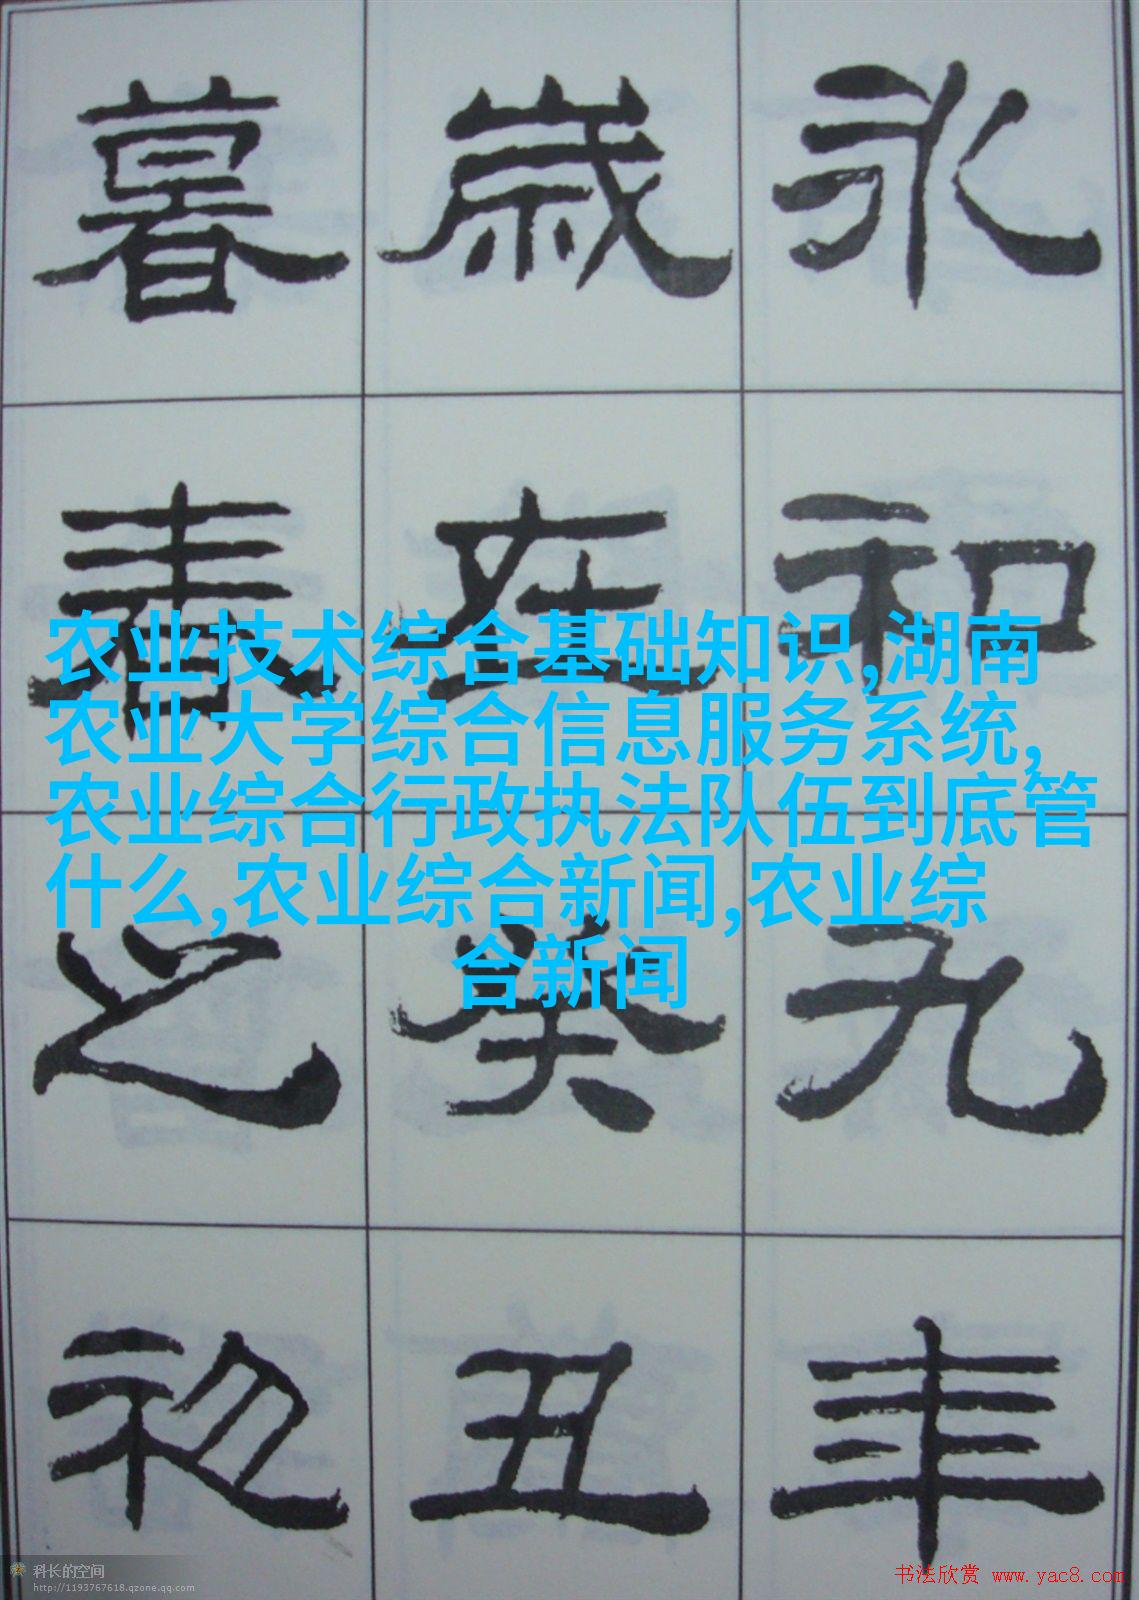 永和九年
歳在癸丑
暮春之初
农业技术综合基础知识,湖南
农业大学综合信息服务系统,
农业综合行政执法队伍到底管
什么,农业综合新闻,农业综
合新闻
科长的空间
http://1193767618.qzone.qq.com
书法欣赏 www.yac8.com